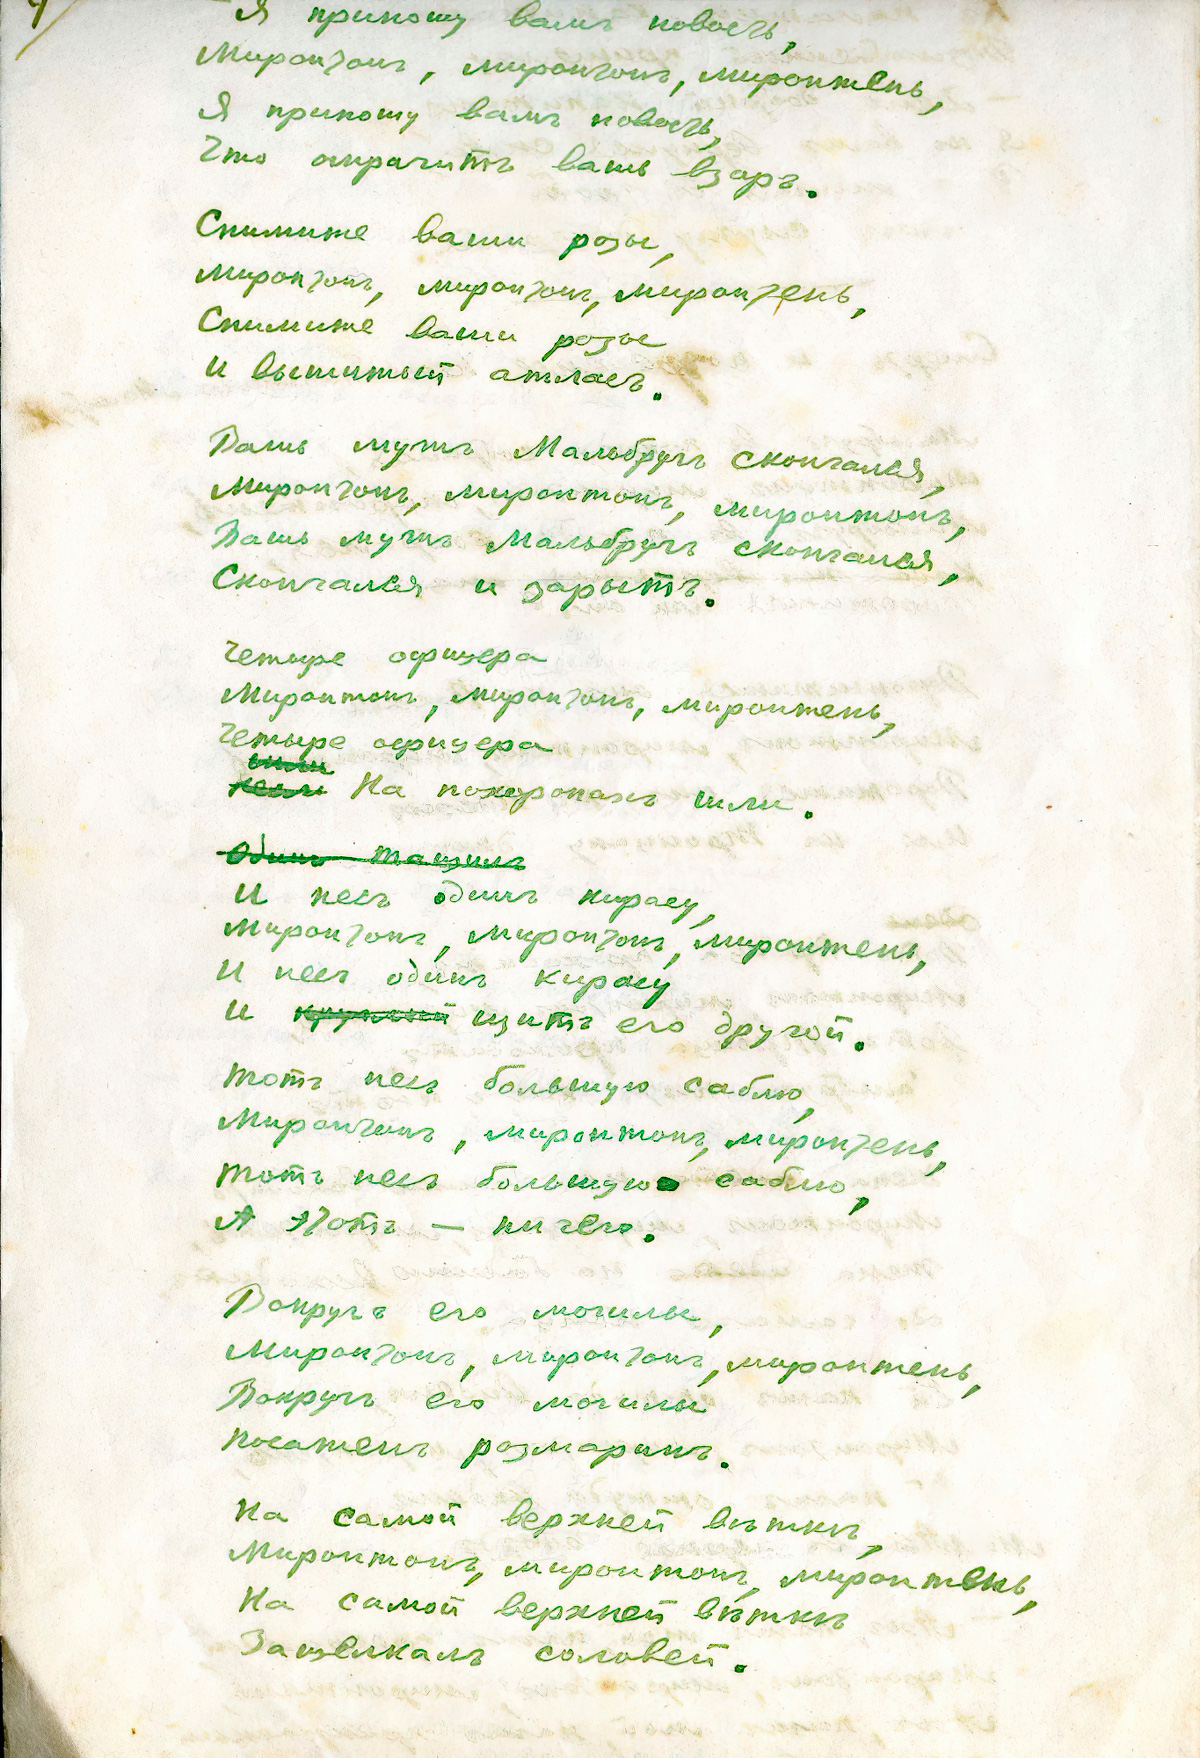 Я приношу вамъ новость,
Миронтонъ, миронтонъ, миронтень,
Я приношу вамъ новость,
Что омрачитъ вашъ взоръ.
Снимите ваши розы,
Миронтонъ, миронтонъ, миронтень,
Снимите ваши розы
И вышитый атласъ.
Вашъ мужъ Мальбругъ скончался,
Миронтонъ, миронтонъ, миронтонъ,
Вашъ мужъ Мальбругъ скончался,
Скончался и зарытъ.
Четыре офицера
Миронтонъ, миронтонъ, миронтень,
Четыре офицера
На похоронахъ шли.
Одинъ тащилъ
И несъ одинъ кирасу,
Миронтонъ, миронтонъ, миронтень,
И несъ одинъ кирасу
И круглый щитъ его другой.
Тотъ несъ большую саблю,
Миронтонъ, миронтонъ, миронтень,
Тотъ несъ большую саблю,
А тотъ — ничего.
Вокругъ его могилы,
Миронтонъ, миронтонъ, миронтень,
Вокругъ его могилы
Посаженъ розмаринъ.
На самой верхней вѣткѣ,
Миронтонъ, миронтонъ, миронтень,
На самой верхней вѣткѣ
Защелкалъ соловей.